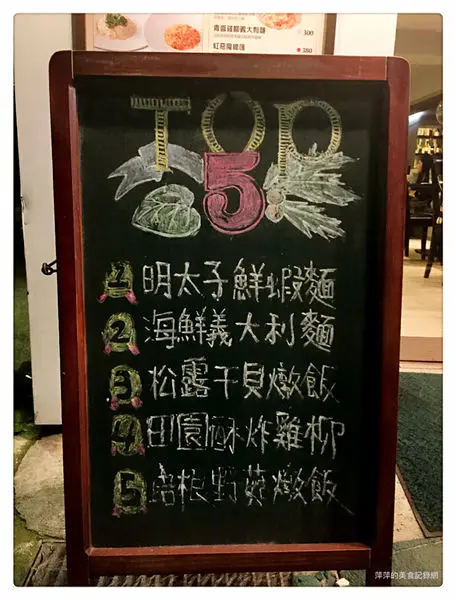 青醬雞腿義大利麵 300
紅惡魔總匯 380
TOP
5
1 明太子鮮蝦麵
2 海鮮義大利麵
3 松露干貝燉飯
4 田園酥炸雞柳
5 培根野菇燉飯
萍萍的美食記錄網